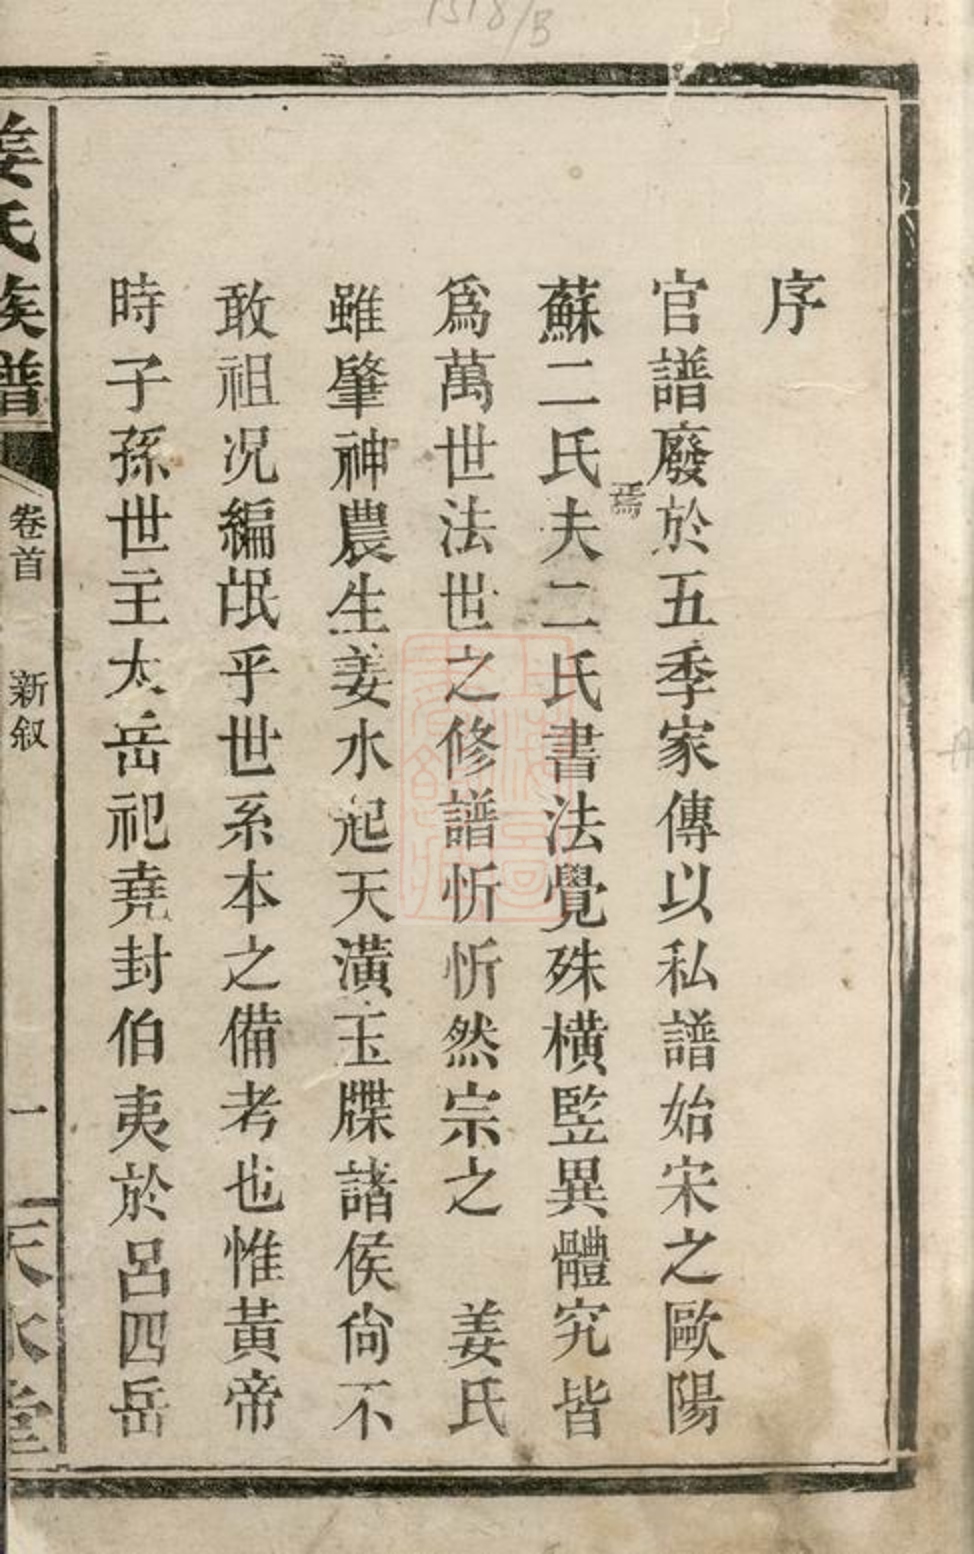 1518/B
序
官譜廢於五季家傳以私譜始宋之歐陽
焉
蘇二氏夫二氏書法覺殊橫竪異體究皆
爲萬世法世之修譜忻忻然宗之 姜氏
雖肇神農生姜水起天潢玉牒諸侯尙不
敢祖况編氓乎世系本之備考也惟黃帝
時子孫世主太岳祀堯封伯夷於呂四岳
姜氏族譜
卷首 新叙
一
天水堂